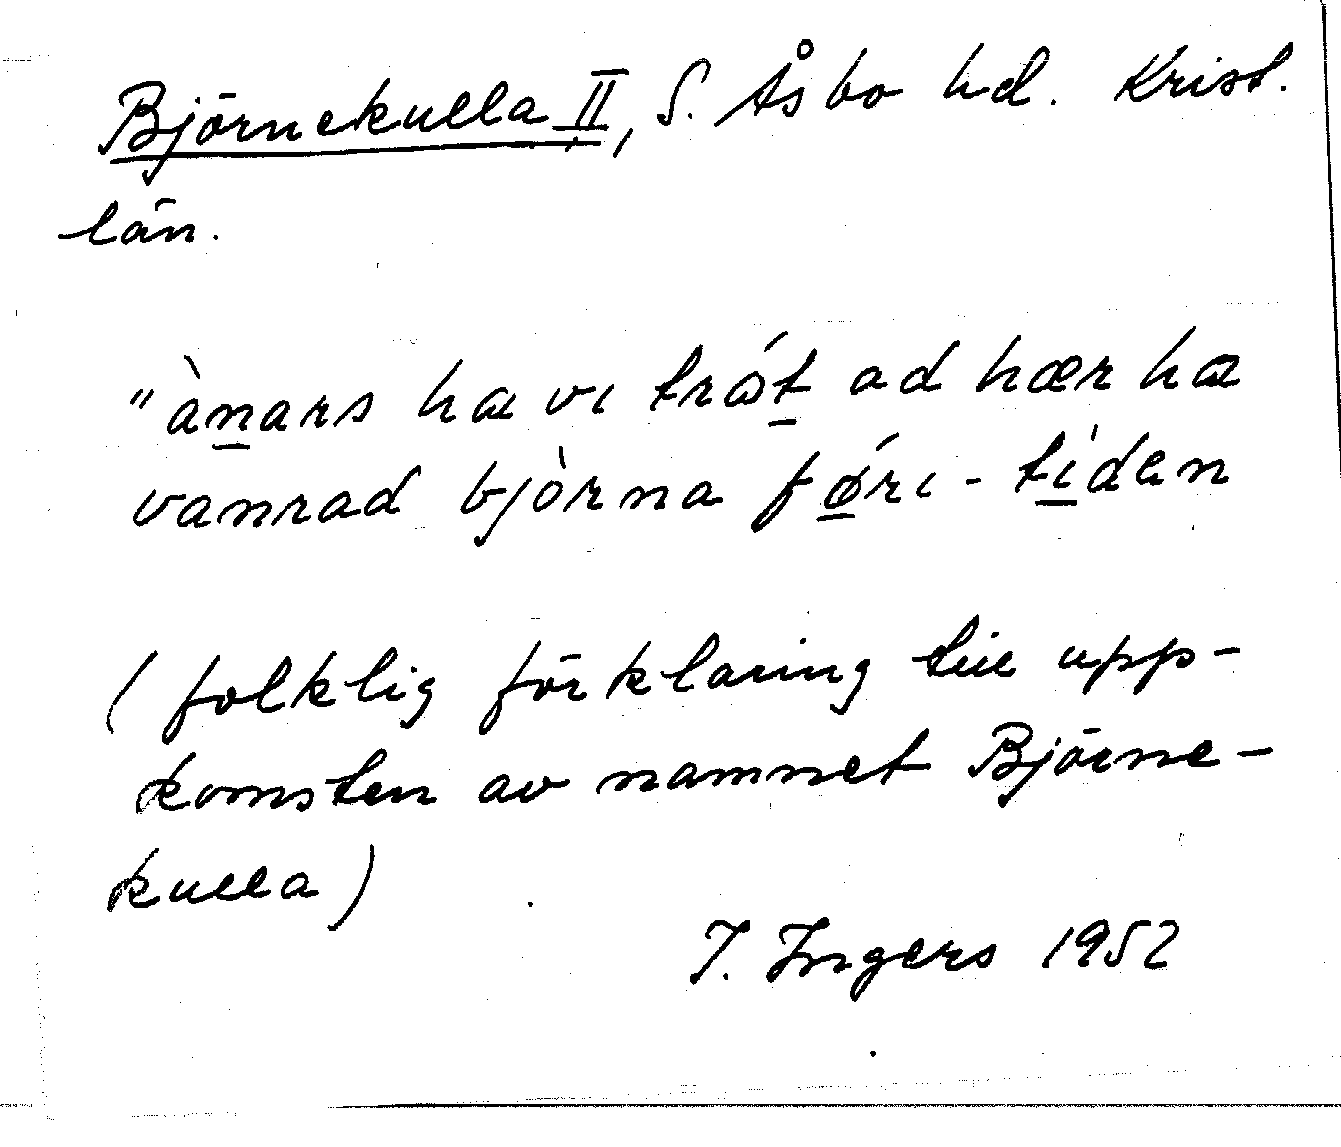 Björnekulla II, S. Åsbo hd. Krist.
län.
"ànars hæ vi trǿt ad hær hæ
vanrad bjòrna føri-tìden
(folklig förklaring till upp-
komsten av namnet Björne-
kulla)
I. Ingers 1952